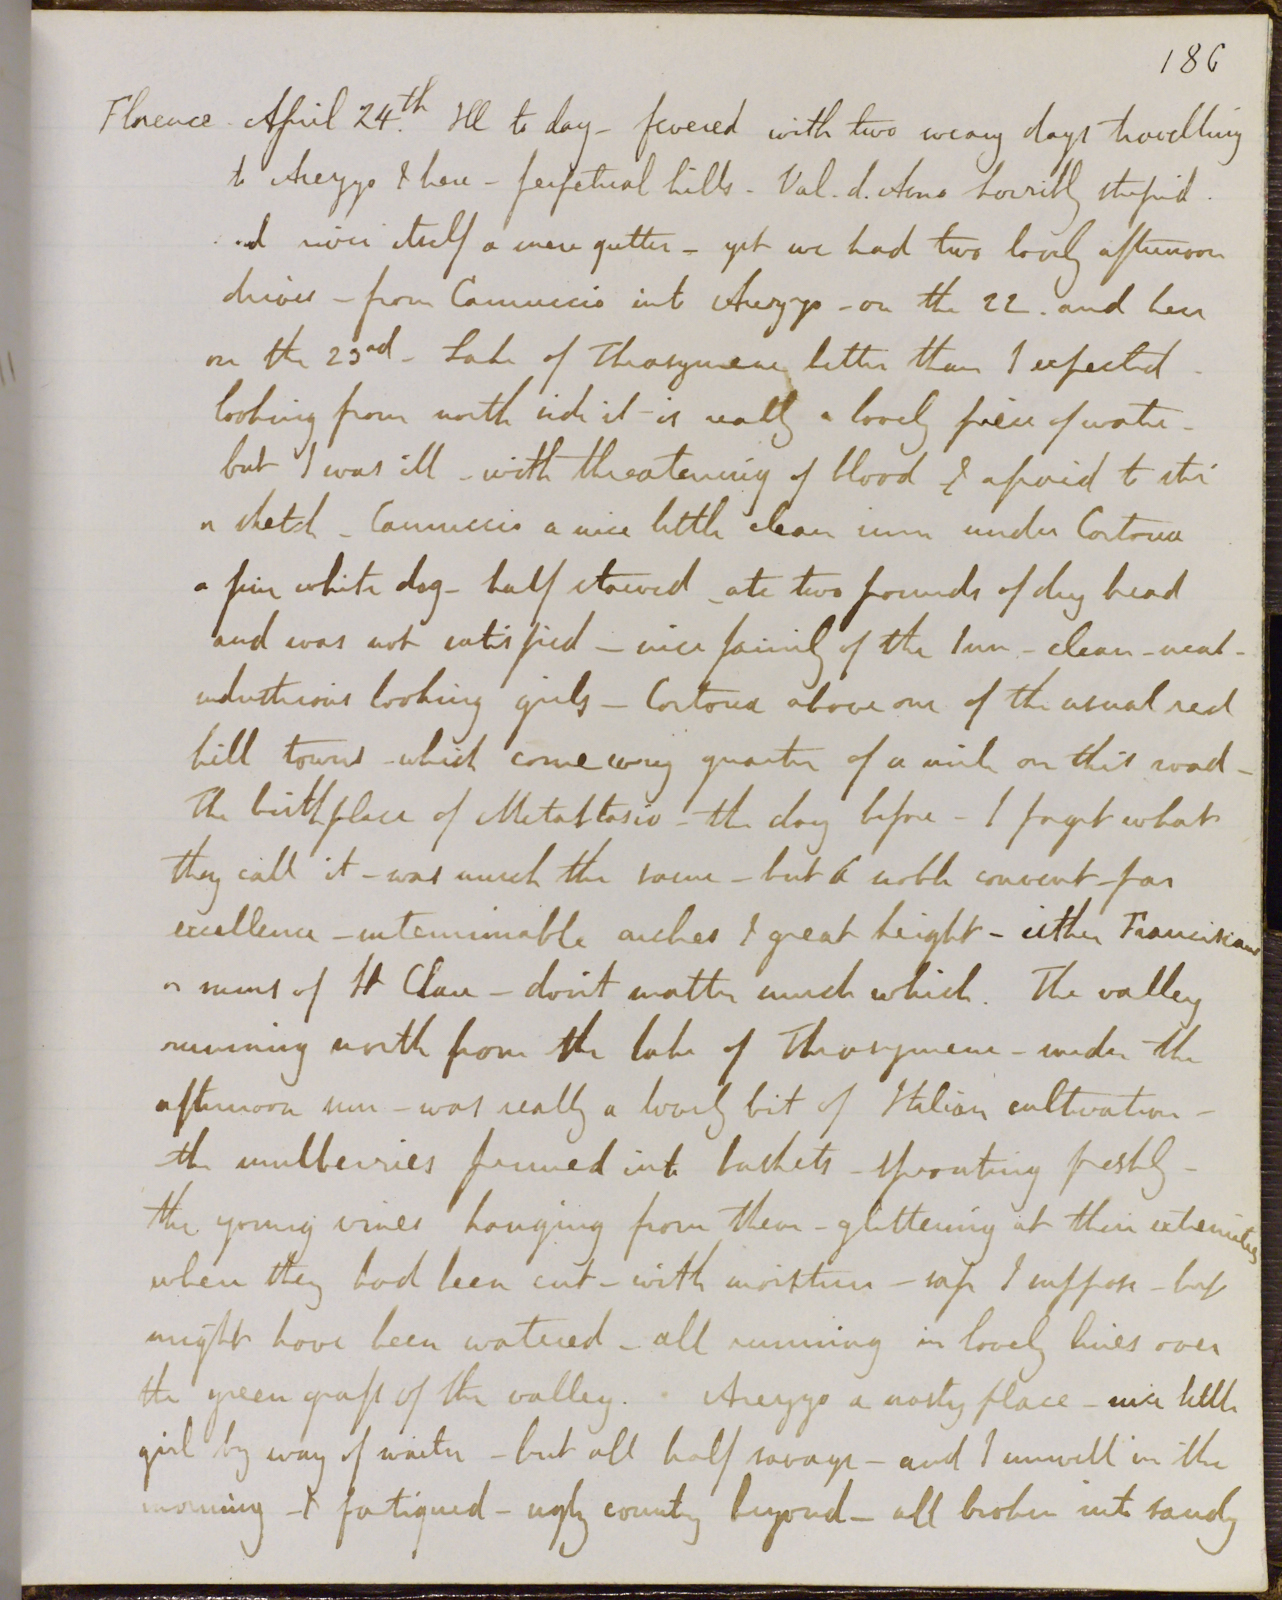 186
Florence. April 24.th Ill to day - fevered with two weary days travelling
to Arezzo & here - perpetual hills - Val. d. Arno horribly stupid.
and river itself a mere gutter - yet we had two lovely afternoon
drives - from Camuccio into Arezzo - on the 22. and here
on the 23rd - Lake of Thrasymene better than I expected -
looking from north side it is really a lovely piece of water -
but I was ill - with threatening of blood & afraid to stir
or sketch - Camuccio a nice little clean inn under Cortona
a fine white dog - half starved - ate two pounds of dry bread
and was not satisfied - nice family of the Inn - clean - neat -
industrious looking girls - Cortona above one of the usual red
hill towns - which come every quarter of a mile on this road -
The birthplace of Metastasio - the day before - I forget what
they call it - was much the same - but a noble convent - par
excellence - interminable arches & great height - either Franciscans
or nuns of St Clare - don't matter much which. The valley
running north from the lake of Thrasymene - under the
afternoon sun - was really a lovely bit of Italian cultivation -
the mulberries pruned into baskets - sprouting freshly -
the young vines hanging from them - glittering at their extremities
where they had been cut - with moisture - sap I suppose - but
might have been watered - all running in lovely lines over
the green grass of the valley. Arezzo a nasty place - nice little
girl by way of waiter - but all half savage - and I unwell in the
morning - & fatigued - ugly country beyond - all broken into sandy